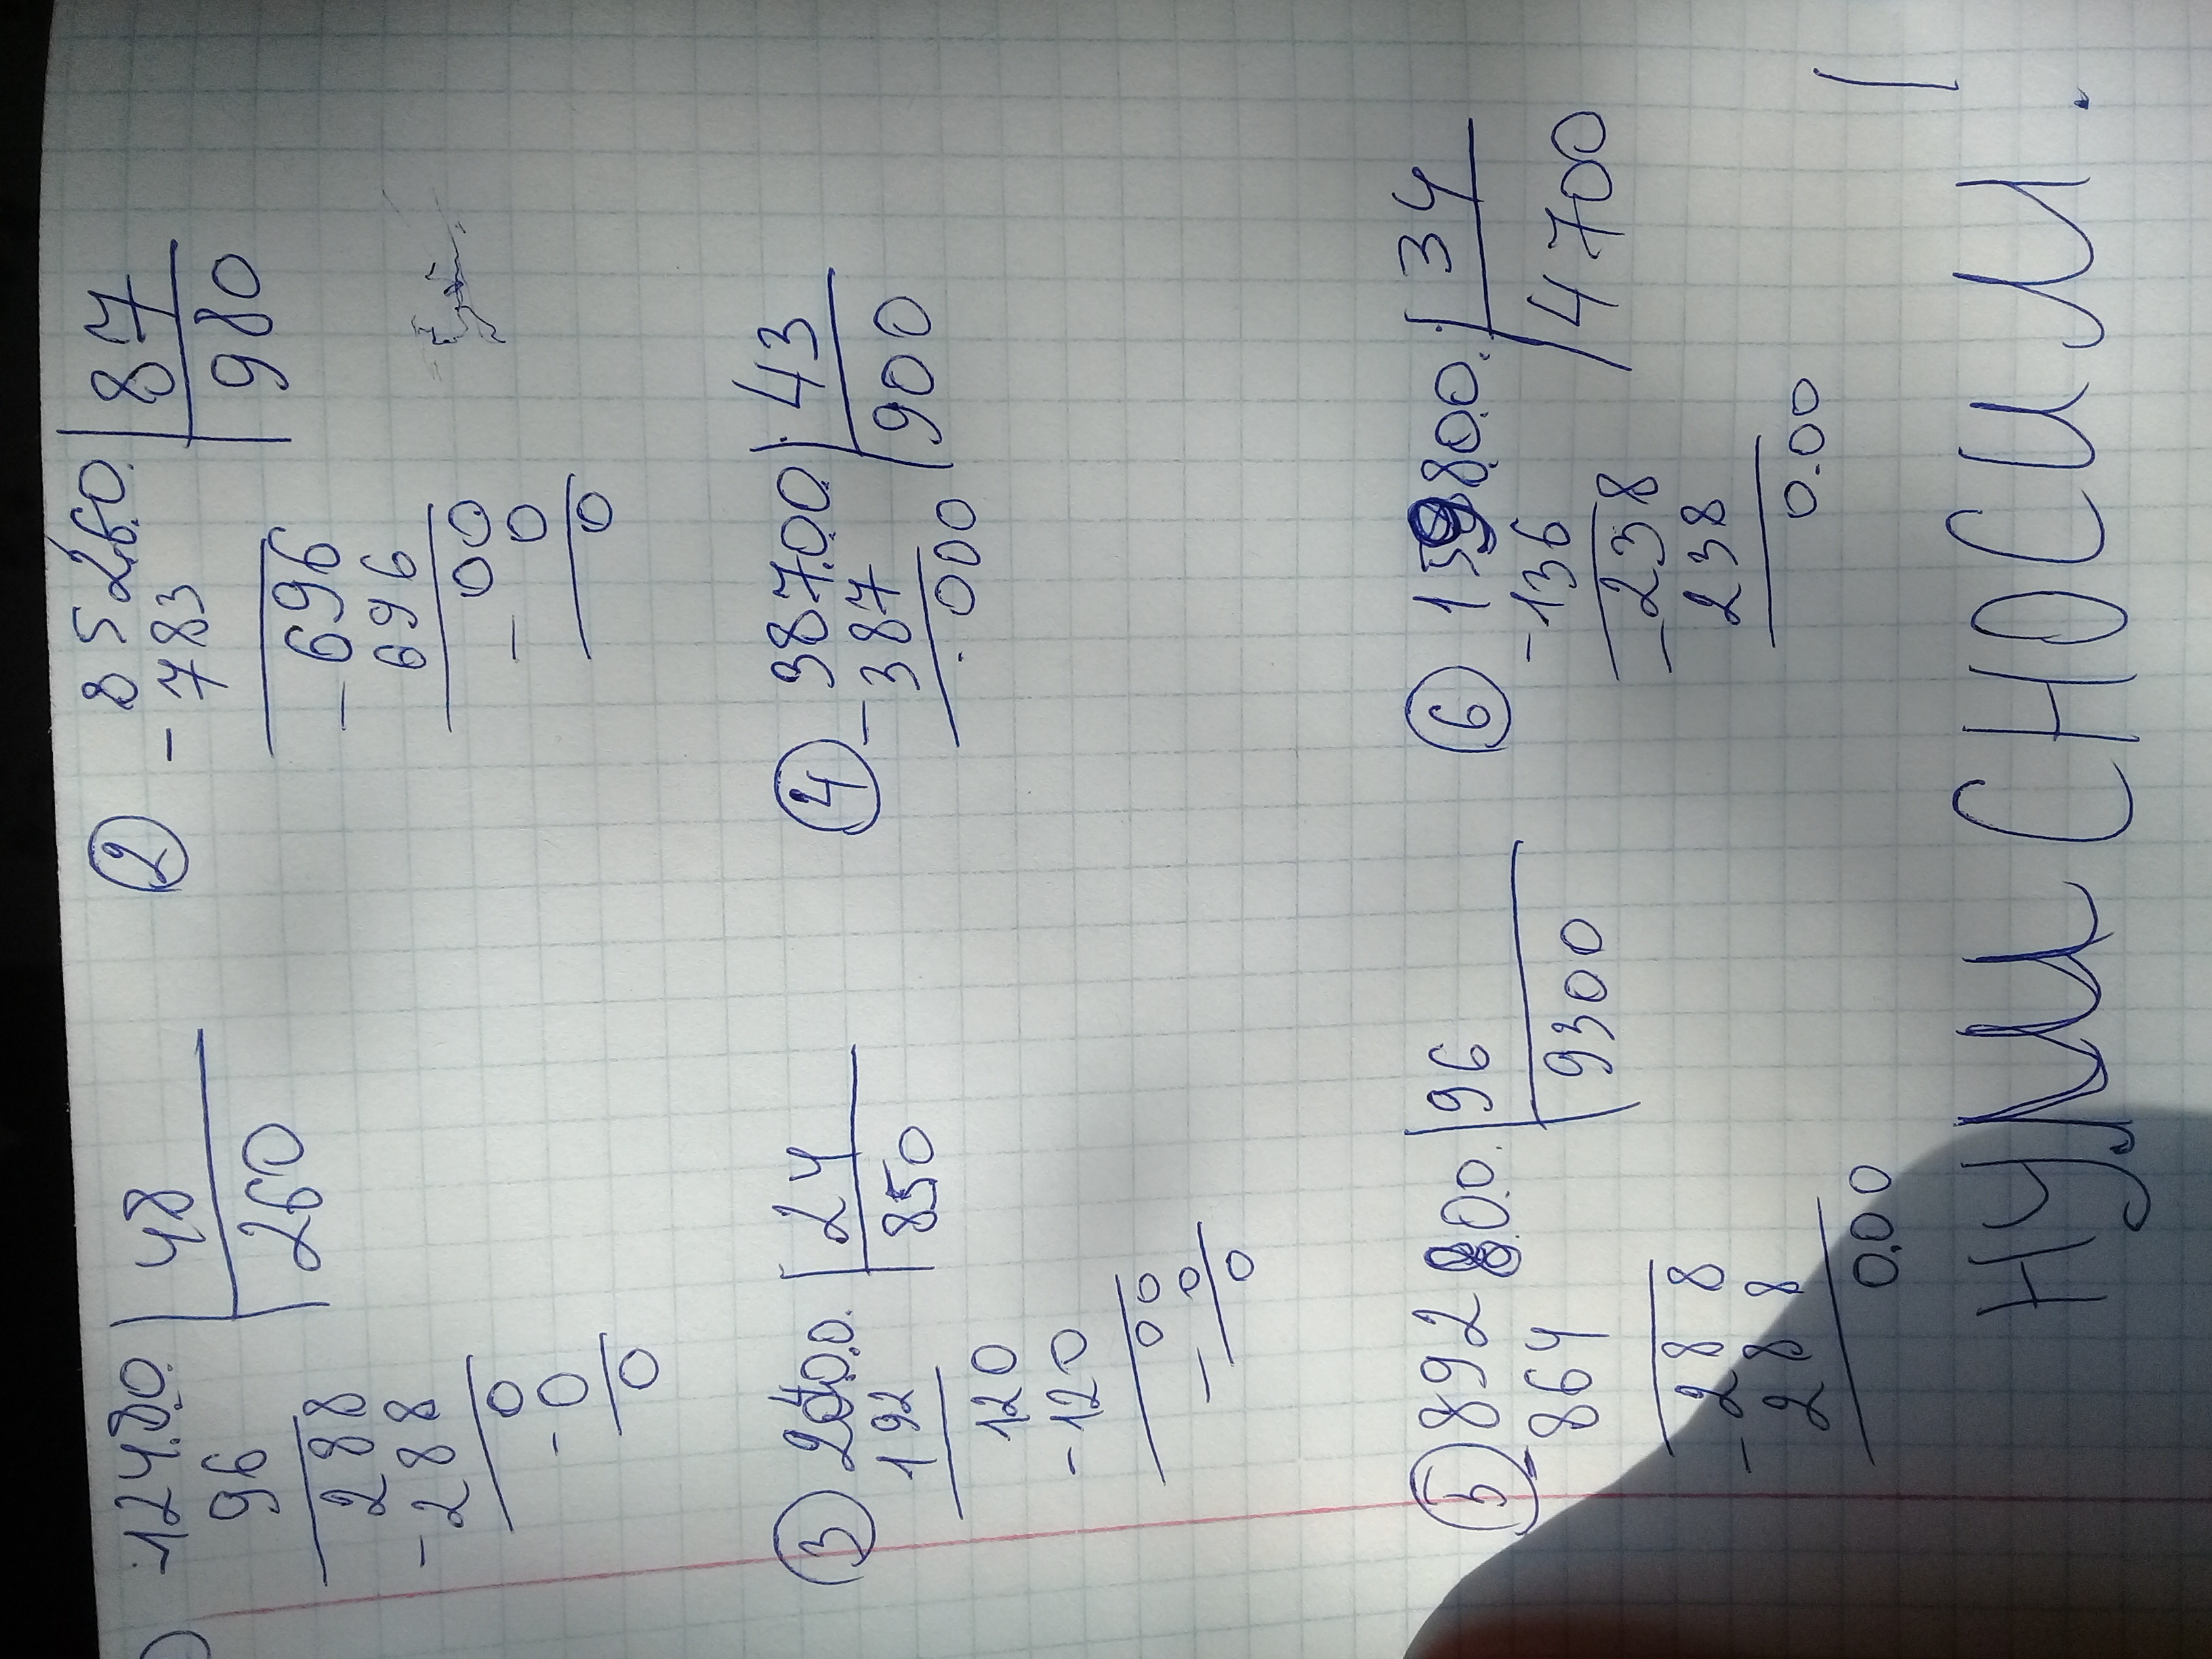 12480. | 48
96 260
288
-288
0
-0
0
② 85260. | 87
-783 980
-696
696
00
-0
0
③ 20400. | 24
192 850
120
-120
00
-0
0
④ 38700. | 43
-387 900
000
⑤ 892800. | 96
-864 9300
-288
288
000
⑥ 159800. | 34
-136 4700
-238
238
000
НУЛИ СНОСИМ.